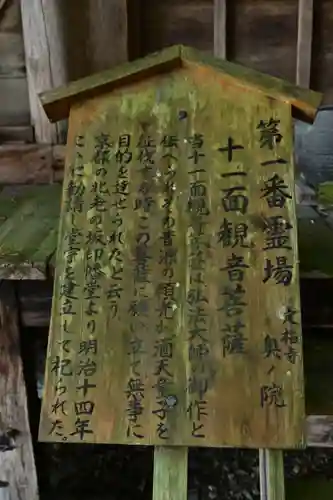 第一番霊場
奥ノ院
十一面観音菩薩
当十一面観音菩薩は弘法大師の御作と
伝へられその昔源の頼光が酒天童子を
征伐する時この菩薩に願い立て無事に
目的を達せられたと云う。
京都の北老の坂印幡堂より明治十四年
こゝに勧請し堂宇を建立して祀られた。